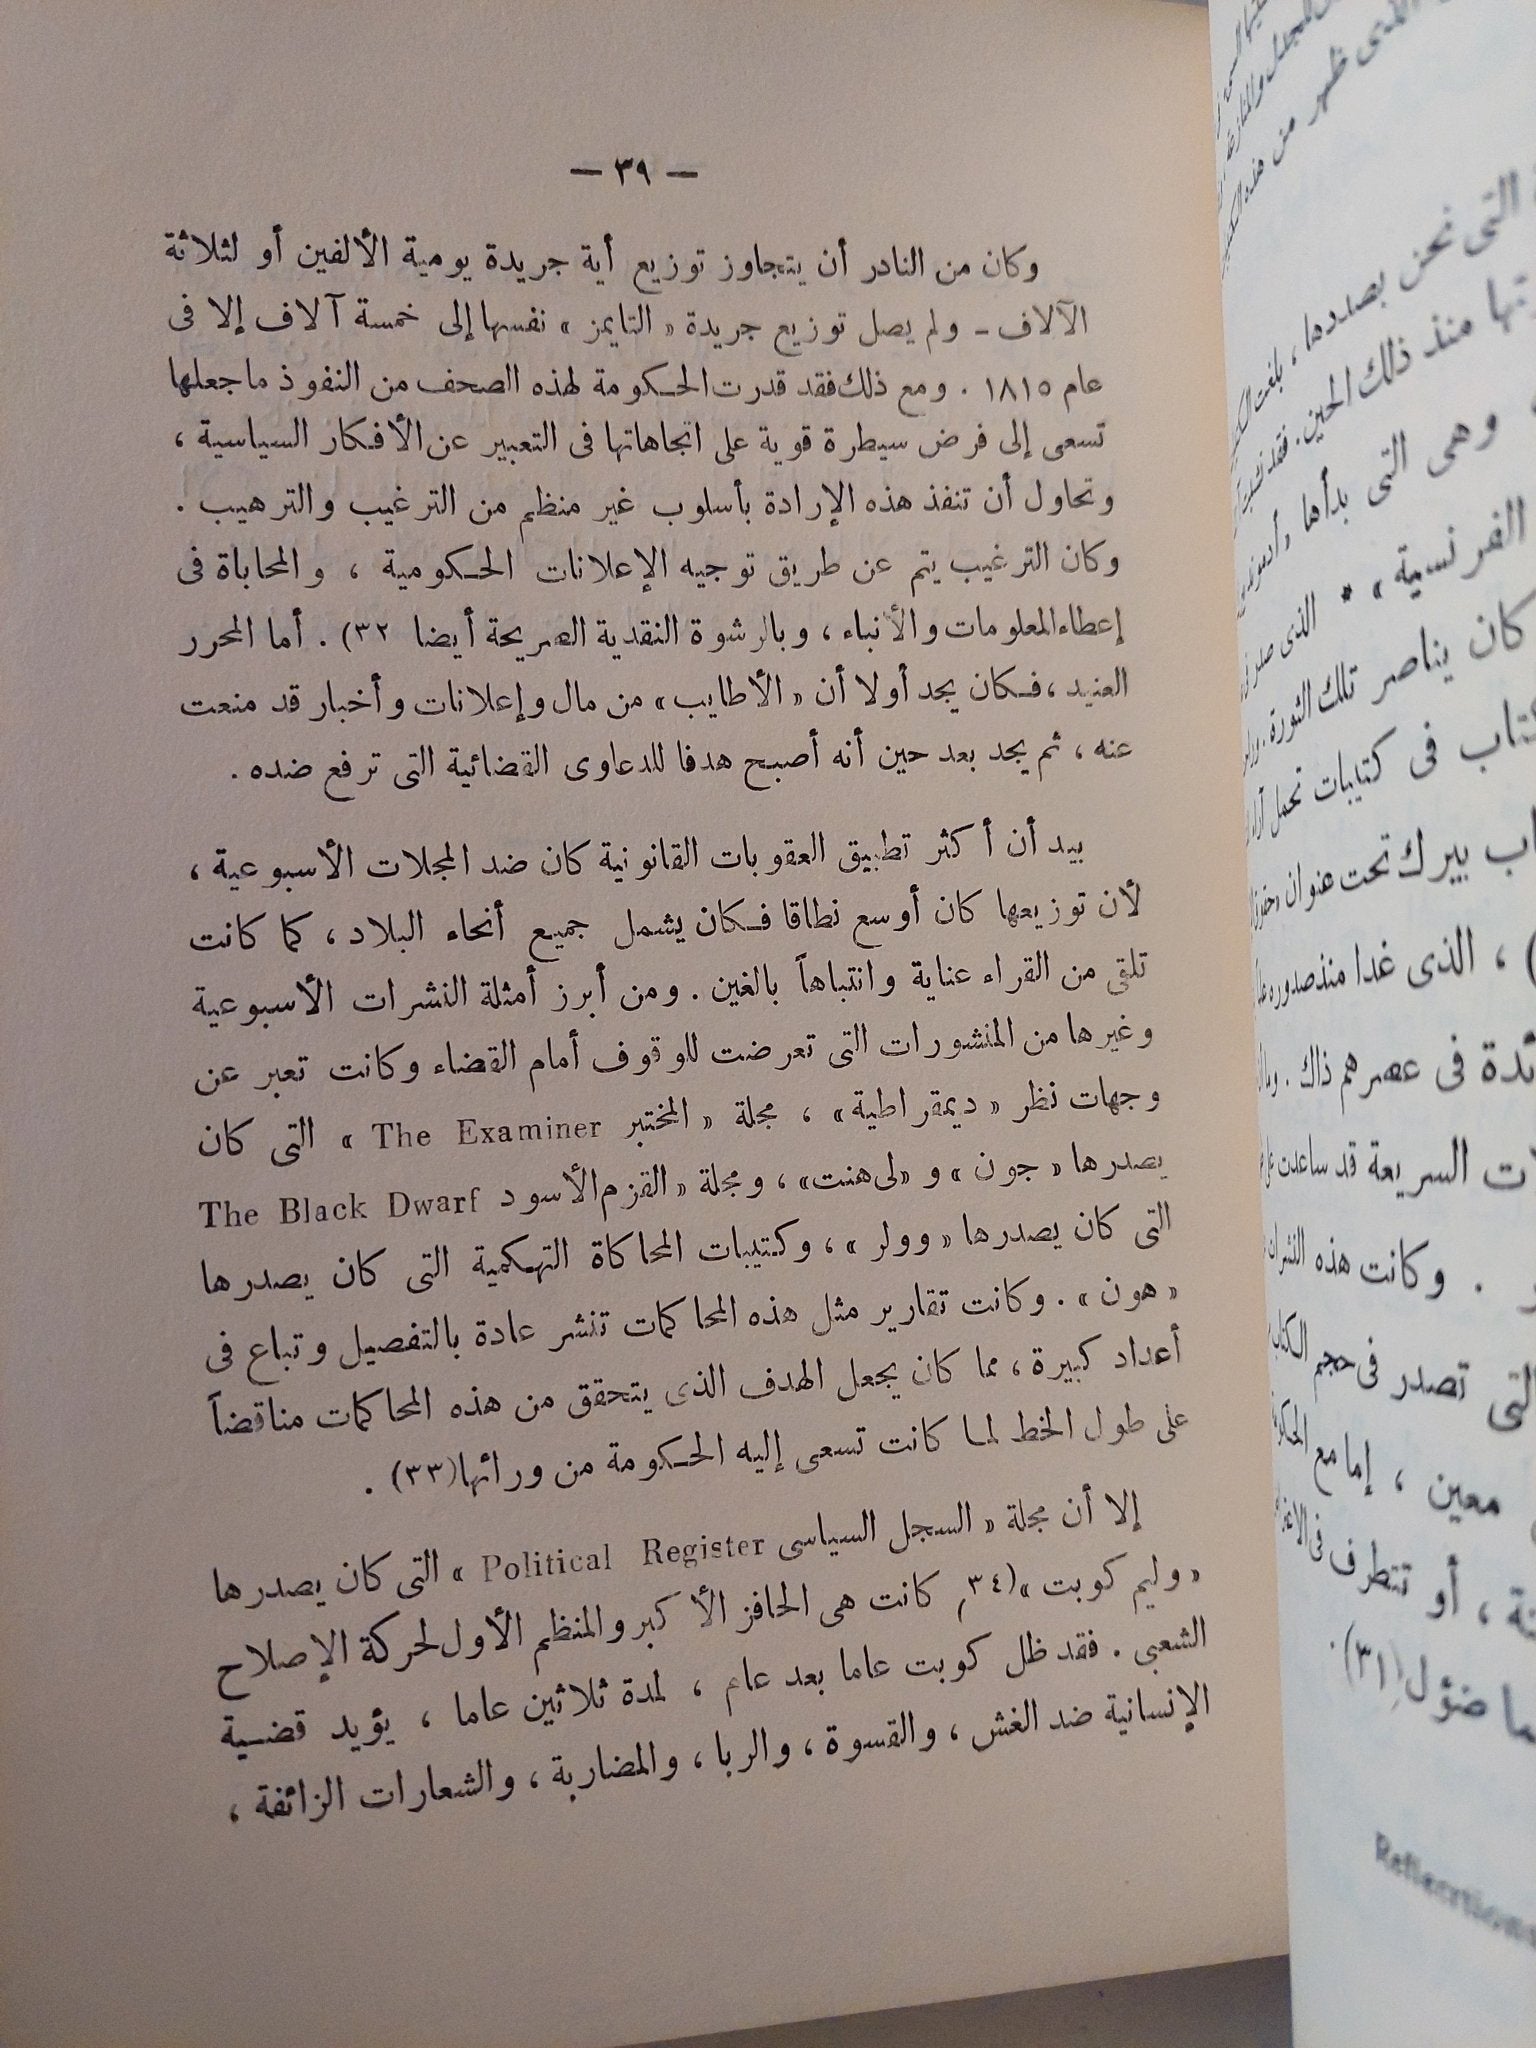 — ٣٩ —
وكان من النادر أن يتجاوز توزيع أية جريدة يومية الألفين أو لثلاثة
الآلاف – ولم يصل توزيع جريدة « التايمز » نفسها إلى خمسة آلاف إلا فى
عام ١٨١٥ . ومع ذلك فقد قدرت الحكومة لهذه الصحف من النفوذ ما جعلها
تسعى إلى فرض سيطرة قوية على اتجاهاتها فى التعبير عن الأفكار السياسية ،
وتحاول أن تنفذ هذه الإرادة بأسلوب غير منظم من الترغيب والترهيب .
وكان الترغيب يتم عن طريق توجيه الإعلانات الحكومية ، والمحاباة فى
إعطاء المعلومات والأنباء ، وبالرشوة النقدية الصريحة أيضا ٣٢) . أما المحرر
العنيد ، فكان يجد أولا أن « الأطايب » من مال وإعلانات وأخبار قد منعت
عنه ، ثم يجد بعد حين أنه أصبح هدفا للدعاوى القضائية التى ترفع ضده .
بيد أن أكثر تطبيق العقوبات القانونية كان ضد المجلات الأسبوعية ،
لأن توزيعها كان أوسع نطاقا فكان يشمل جميع أنحاء البلاد ، كما كانت
تلقى من القراء عناية وانتباهاً بالغين . ومن أبرز أمثلة النشرات الأسبوعية
وغيرها من المنشورات التى تعرضت للوقوف أمام القضاء وكانت تعبر عن
وجهات نظر « ديمقراطية » ، مجلة « المختبر The Examiner » التى كان
يصدرها « جون » و « لى هنت » ، ومجلة « القزم الأسود The Black Dwarf
التى كان يصدرها « وولر » ، وكتيبات المحاكاة التهكمية التى كان يصدرها
« هون » . وكانت تقارير مثل هذه المحاكمات تنشر عادة بالتفصيل وتباع فى
أعداد كبيرة ، مما كان يجعل الهدف الذى يتحقق من هذه المحاكمات مناقضاً
على طول الخط لما كانت تسعى إليه الحكومة من ورائها(٣٣) .
إلا أن مجلة « السجل السياسى Political Register » التى كان يصدرها
« وليم كوبت »(٣٤) كانت هى الحافز الأكبر والمنظم الأول لحركة الإصلاح
الشعبى . فقد ظل كوبت عاما بعد عام ، لمدة ثلاثين عاما ، يؤيد قضية
الإنسانية ضد الغش ، والقسوة ، والربا ، والمضاربة ، والشعارات الزائفة ،
التى نحن بصددها ، بلغت
منذ ذلك الحين . فقد
وهى التى بدأها
الفرنسية » * الذى صدر
كان يناصر تلك الثورة .
فى كتيبات تحمل
بيرك تحت عنوان
) ، الذى غدا منذ صدوره
فى عصرهم ذاك .
السريعة قد ساعدت
. وكانت هذه
التى تصدر فى حجم
معين ، إما مع
، أو تتطرف فى
ضؤل(٣١) .